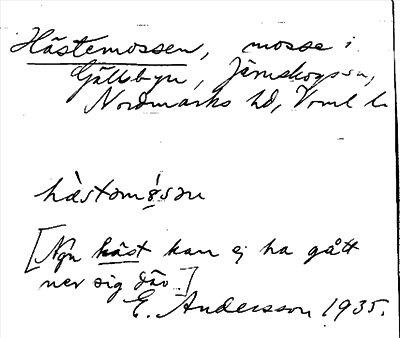 Hästemossen, mosse i
Gällsbyn, Järnskogs sn,
Nordmarks hd, Vrml l.
hàstamǫ̀sən
[Ngn häst kan ej ha gått
ner sig där.]
E. Andersson 1935.